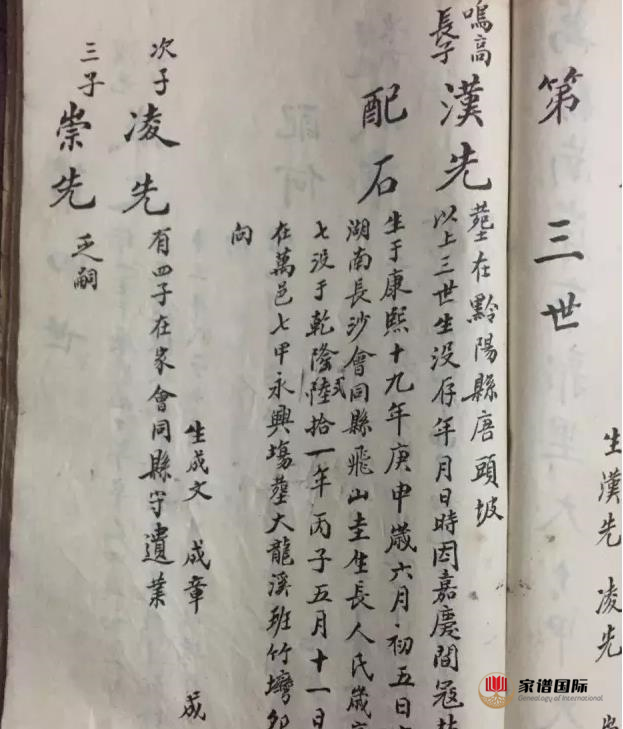 生漢先 凌先
第三世
鳴高
長子
漢先
塟在黔陽縣唐頭坡
以上三世生没存年月日時因嘉慶間冦
配石
生于康熙十九年庚申歲六月初五日
湖南長沙會同縣飛山圭生長人氏歲
七没于乾隆陸拾一年丙子五月十一日
弍
在萬邑七甲永興塲塟大龍溪班竹塆卯
向
生成文 成章 成
次子
凌先
有四子在家會同縣守遺業
三子
崇先
乏嗣
家谱国际
Genealogy of International